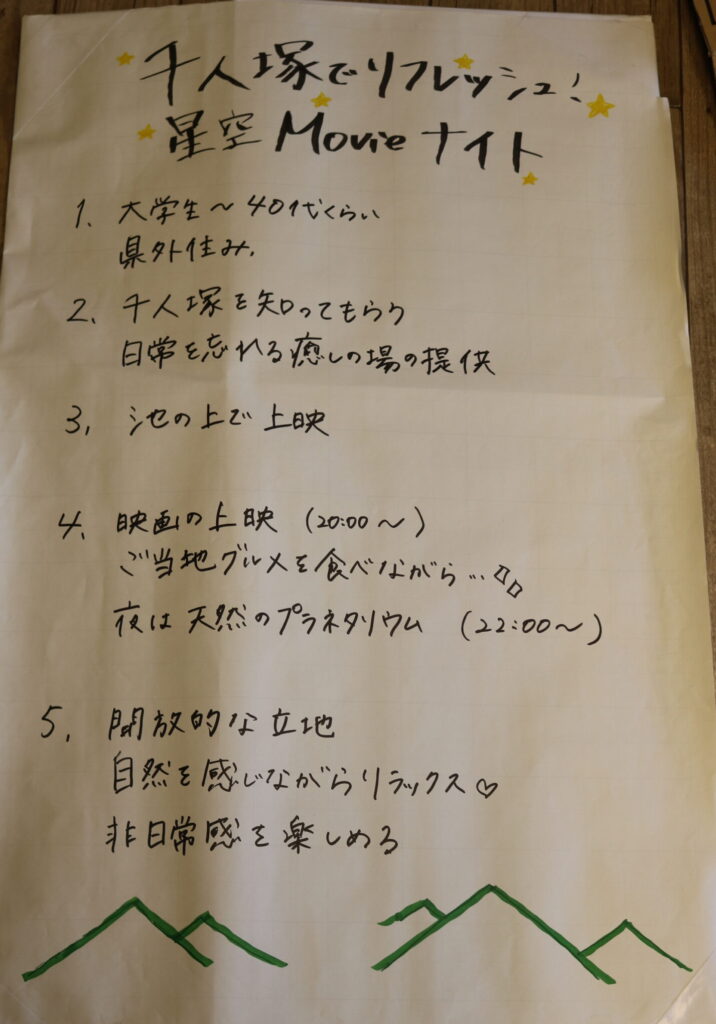 千人塚でリフレッシュ!
星空 Movie ナイト
1. 大学生～40代くらい
県外住み.
2. 千人塚を知ってもらう
日常を忘れる癒しの場の提供
3. 池の上で上映
4. 映画の上映 (20:00～)
ご当地グルメを食べながら...
夜は天然のプラネタリウム (22:00～)
5. 開放的な立地
自然を感じながらリラックス♡
非日常感を楽しめる